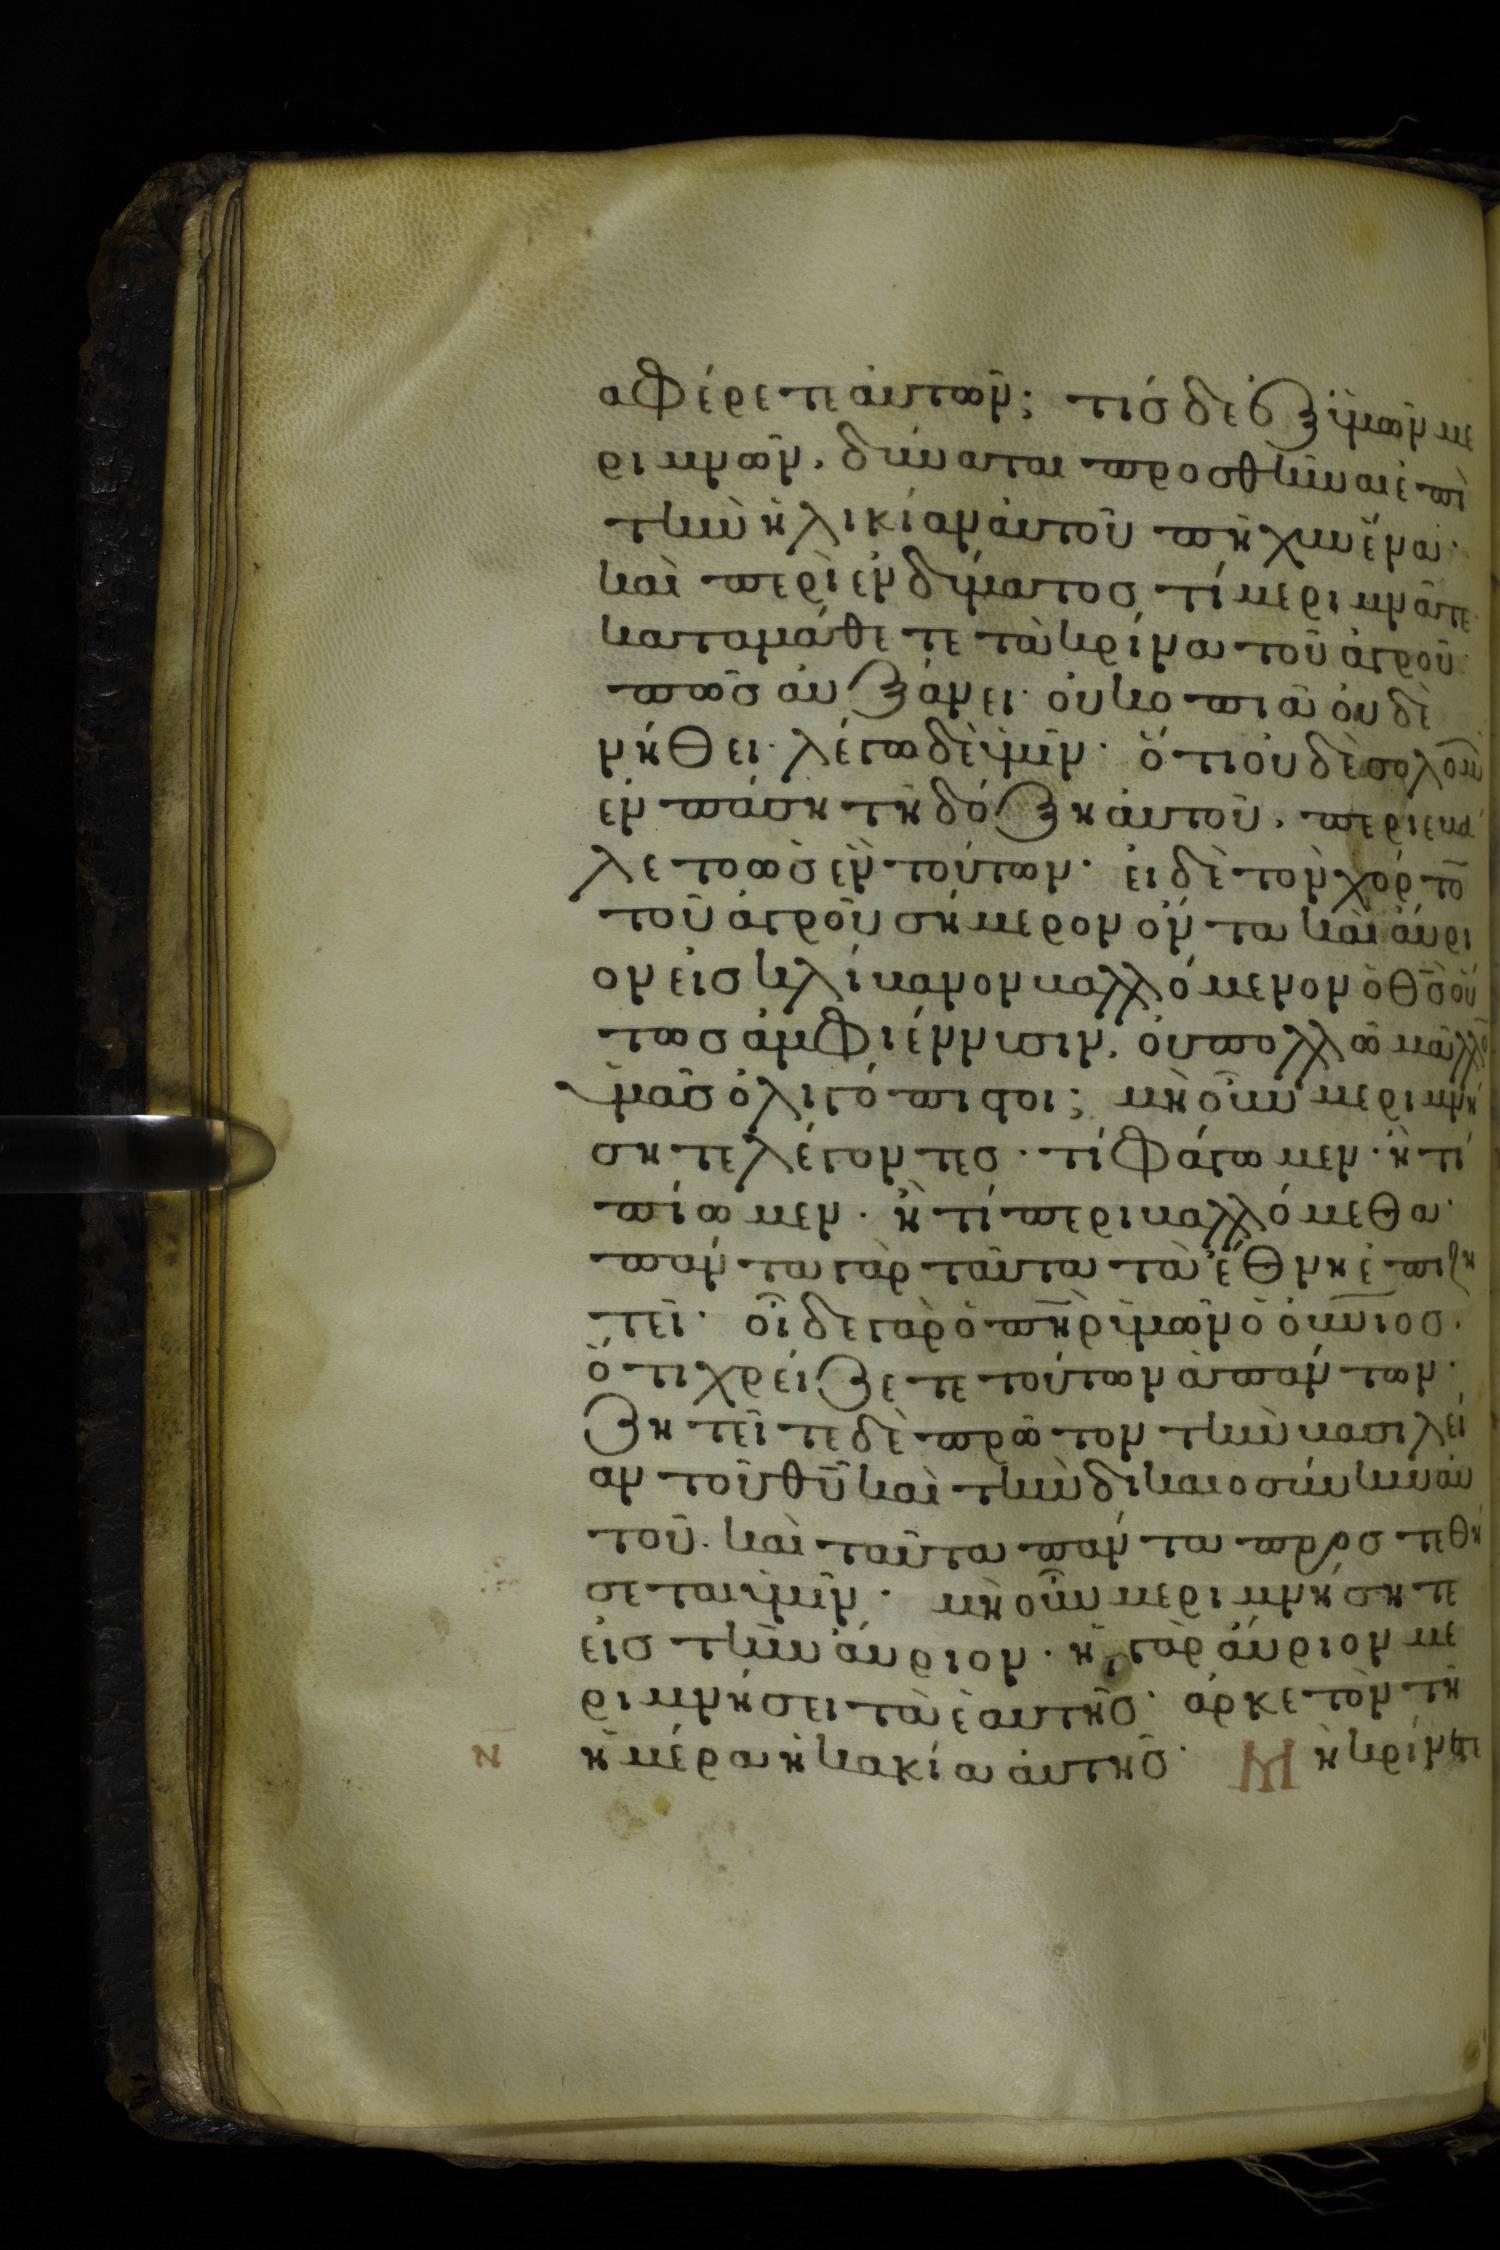 αφέρετε αὐτῶν; τίς δὲ ἐξ ὑμῶν με
ριμνῶν. δύναται προσθῆναι ἐπὶ
τὴν ἡλικίαν αὐτοῦ πῆχυν ἕνα·
καὶ περὶ ἐνδύματος τί μεριμνᾶτε·
καταμάθετε τὰ κρίνα τοῦ ἀγροῦ
πῶς αὐξάνει· οὐ κοπιᾶ οὐδὲ
νήθει· λέγω δὲ ὑμῖν· ὅτι οὐδὲ σολομῶν
ἐν πάση τῆ δόξη αὐτοῦ. περιεβά
λετο ὡς ἓν τούτων. εἰ δὲ τὸν χόρτον
τοῦ ἀγροῦ σήμερον ὄντα καὶ αὔρι
ον εἰς κλίβανον βαλλόμενον ὁ θ̅ς̅ οὕ
τως ἀμφιέννυσιν. οὐ πολλῶ μᾶλλον
ὑμᾶς ὀλιγόπιστοι; μὴ οὖν μεριμνή
σητε λέγοντες· τί φάγωμεν· ἢ τί
πίωμεν· ἢ τί περιβαλλόμεθα·
πάντα γὰρ ταῦτα τὰ ἔθνη ἐπιζη
τεῖ· οἶδε γὰρ ὁ π̅η̅ρ̅ ὑμῶν ὁ ο̅υ̅νιος·
ὅτι χρήζετε τούτων ἁπάντων·
ζητεῖτε δὲ πρῶτον τὴν βασιλεί
αν τοῦ θ̅υ̅ καὶ τὴν δικαιοσύνην αὐ
τοῦ. καὶ ταῦτα πάντα προστεθή
σεται ὑμῖν· μὴ οὖν μεριμνήσητε
εἰς τὴν αὔριον· ἡ γὰρ αὔριον με
ριμνήσει τὰ ἑαυτῆς· ἀρκετὸν τῆ
ν̅ ἡμέρα ἡ κακία αὐτῆς· Μὴ κρίνετε